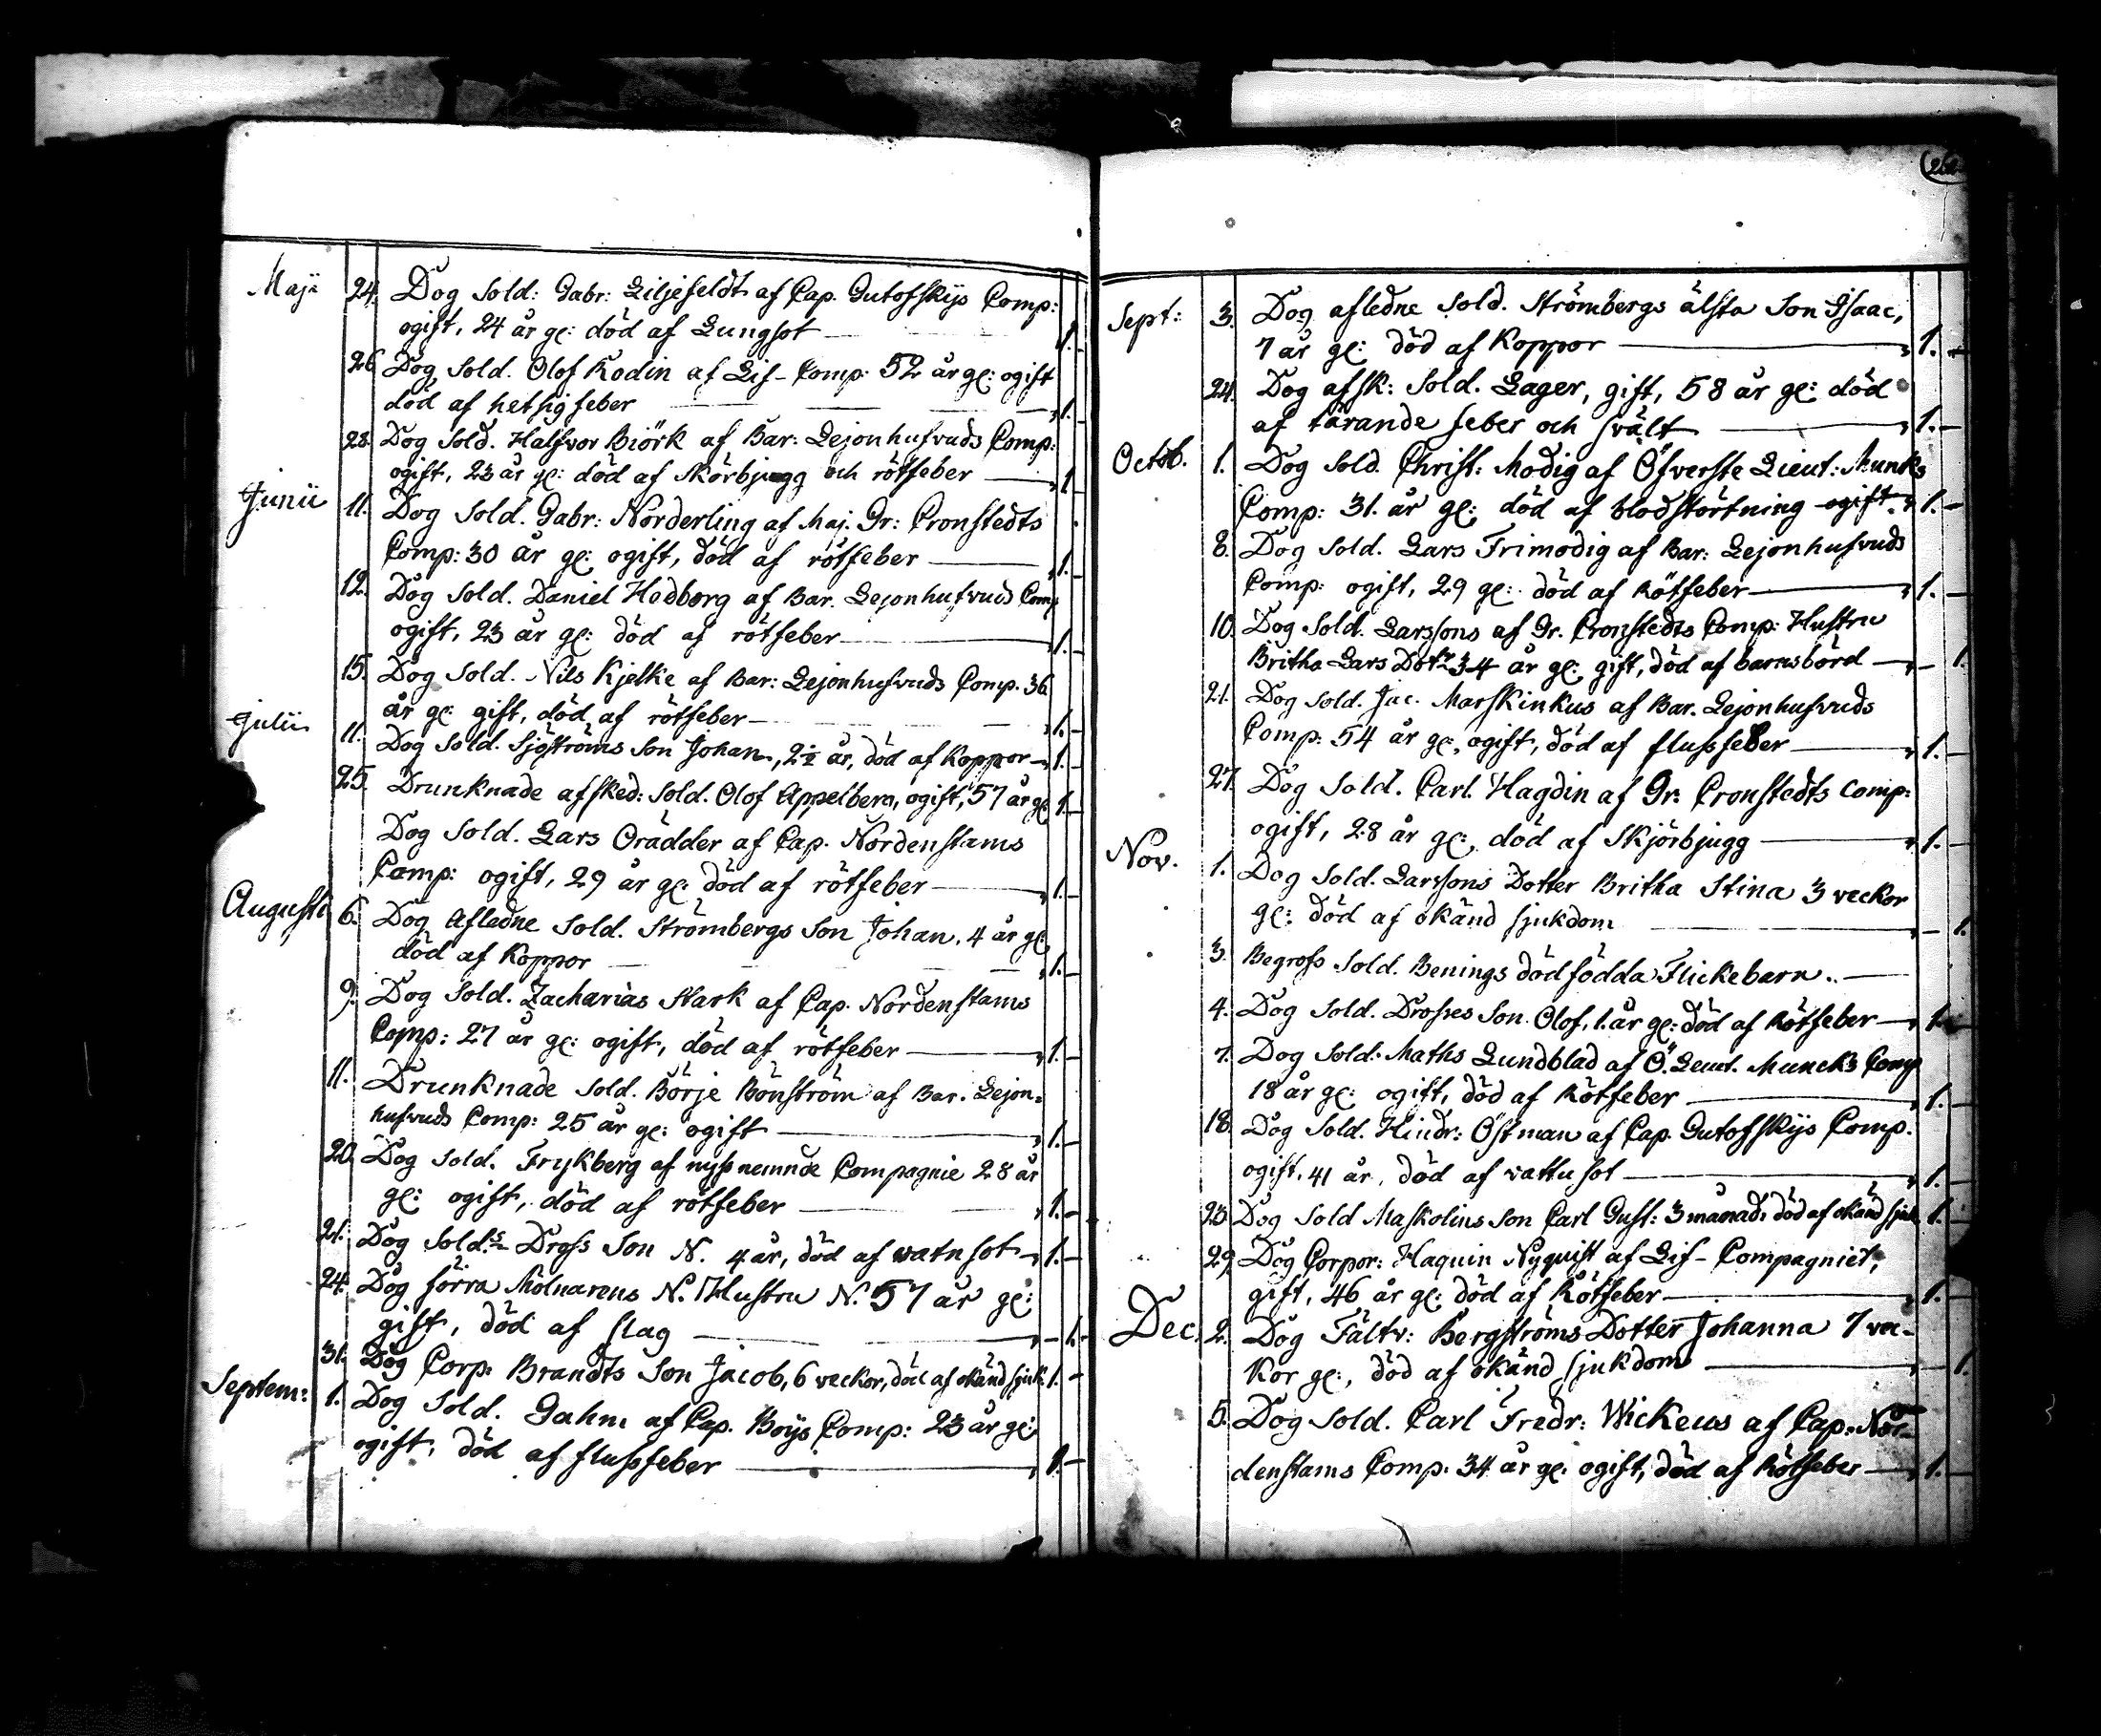 Maji 24. Dog Sold: Gabr: Liljefeldt af Cap. Gutofskys Comp:
ogift, 24 år gl: död af Lungsot 1.
26 Dog Sold. Olof Kodin af Lif-Comp. 52 år gl: ogift
död af hetsig feber 1.
28. Dog Sold. Halfvor Biörk af Bar: Lejonhufvuds Comp:
ogift, 23 år gl: död af Skörbjugg och rötfeber 1.
Junii 11. Dog Sold. Gabr: Norderling af Maj. Gr: Cronstedts
Comp: 30 år gl: ogift, död af rötfeber 1.
12. Dog Sold. Daniel Hedborg af Bar. Lejonhufvuds Comp
ogift, 23 år gl: död af rötfeber 1.
15. Dog Sold. Nils Kjelke af Bar: Lejonhufvuds Comp. 36
år gl: gift, död af rötfeber 1.
Julii 11. Dog Sold. Sjöströms Son Johan, 2½ år, död af Koppor 1.
25. Drunknade afsked: Sold. Olof Appelberg, ogift, 57 år gl 1.
Dog Sold. Lars Orädder af Cap. Nordenstams
Comp: ogift, 29 år gl: död af rötfeber 1.
Augusti 6. Dog Afledne Sold. Strömbergs Son Johan, 4 år gl:
död af Koppor 1.
9. Dog Sold. Zacharias Stark af Cap. Nordenstams
Comp: 27 år gl: ogift, död af rötfeber 1.
11. Drunknade Sold. Börje Bönström af Bar. Lejon-
hufvuds Comp: 25 år gl: ogift 1.
20. Dog Sold. Frykberg af nyssnemnde Compagnie 28 år
gl: ogift, död af rötfeber 1.
21. Dog Sold:s Drofs Son N. 4 år, död af watusot 1.
24. Dog förra Mölnarens N. Hustru N. 57 år gl:
gift, död af slag 1.
31. Dog Corp: Brandts Son Jacob, 6 veckor, död af okänd sjuk. 1.
Septem: 1. Dog Sold. Gahm af Cap. Boijs Comp: 23 år gl:
ogift, död af flussfeber 1.
Sept: 3. Dog afledne Sold. Strömbergs älsta Son Isaac,
7 år gl: död af Koppor 1.
24. Dog afsk: Sold. Lager, gift, 58 år gl: död
af tärande feber och svält 1.
Octob. 1. Dog Sold. Christ: Modig af Öfverste Lieut: Munks
Comp: 31. år gl: död af blodstörtning ogift. 1.
8. Dog Sold. Lars Frimodig af Bar: Lejonhufvuds
Comp: ogift, 29 gl: död af Rötfeber 1.
10. Dog Sold. Larssons af Gr. Cronstedts Comp: Hustru
Britha Lars Dotr 34 år gl: gift, död af barnsbörd 1.
21. Dog Sold. Jac. Marskinkus af Bar. Lejonhufvuds
Comp: 54 år gl:, ogift, död af flussfeber 1.
27. Dog Sold. Carl Hagdin af Gr: Cronstedts Comp:
ogift, 28 år gl:, död af Skjörbjugg 1.
Nov. 1. Dog Sold. Larssons Dotter Britha Stina 3 veckor
gl: död af okänd sjukdom 1.
3. Begrofs Sold. Benings dödfödda Flickebarn.
4. Dog Sold. Drofves Son Olof, 1. år gl: död af Rötfeber 1.
7. Dog Sold: Maths Lundblad af Ö. Leut. Muncks Comp
18 år gl: ogift, död af Rötfeber 1.
18. Dog Sold. Hindr: Östman af Cap. Gutofskys Comp.
ogift, 41 år, död af vattusot 1.
23. Dog Sold Maskolins Son Carl Gust: 3 månad: död af okänd sjuk 1.
29. Dog Corpor: Haquin Nyquist af Lif-Compagniet,
gift, 46 år gl: död af Rötfeber 1.
Dec. 2. Dog Fältv: Bergströms Dotter Johanna 7 vec-
kor gl:, död af okänd sjukdom 1.
5. Dog Sold. Carl Fredr: Wickeus af Cap. Nor-
denstams Comp. 34 år gl: ogift, död af Rötfeber 1.